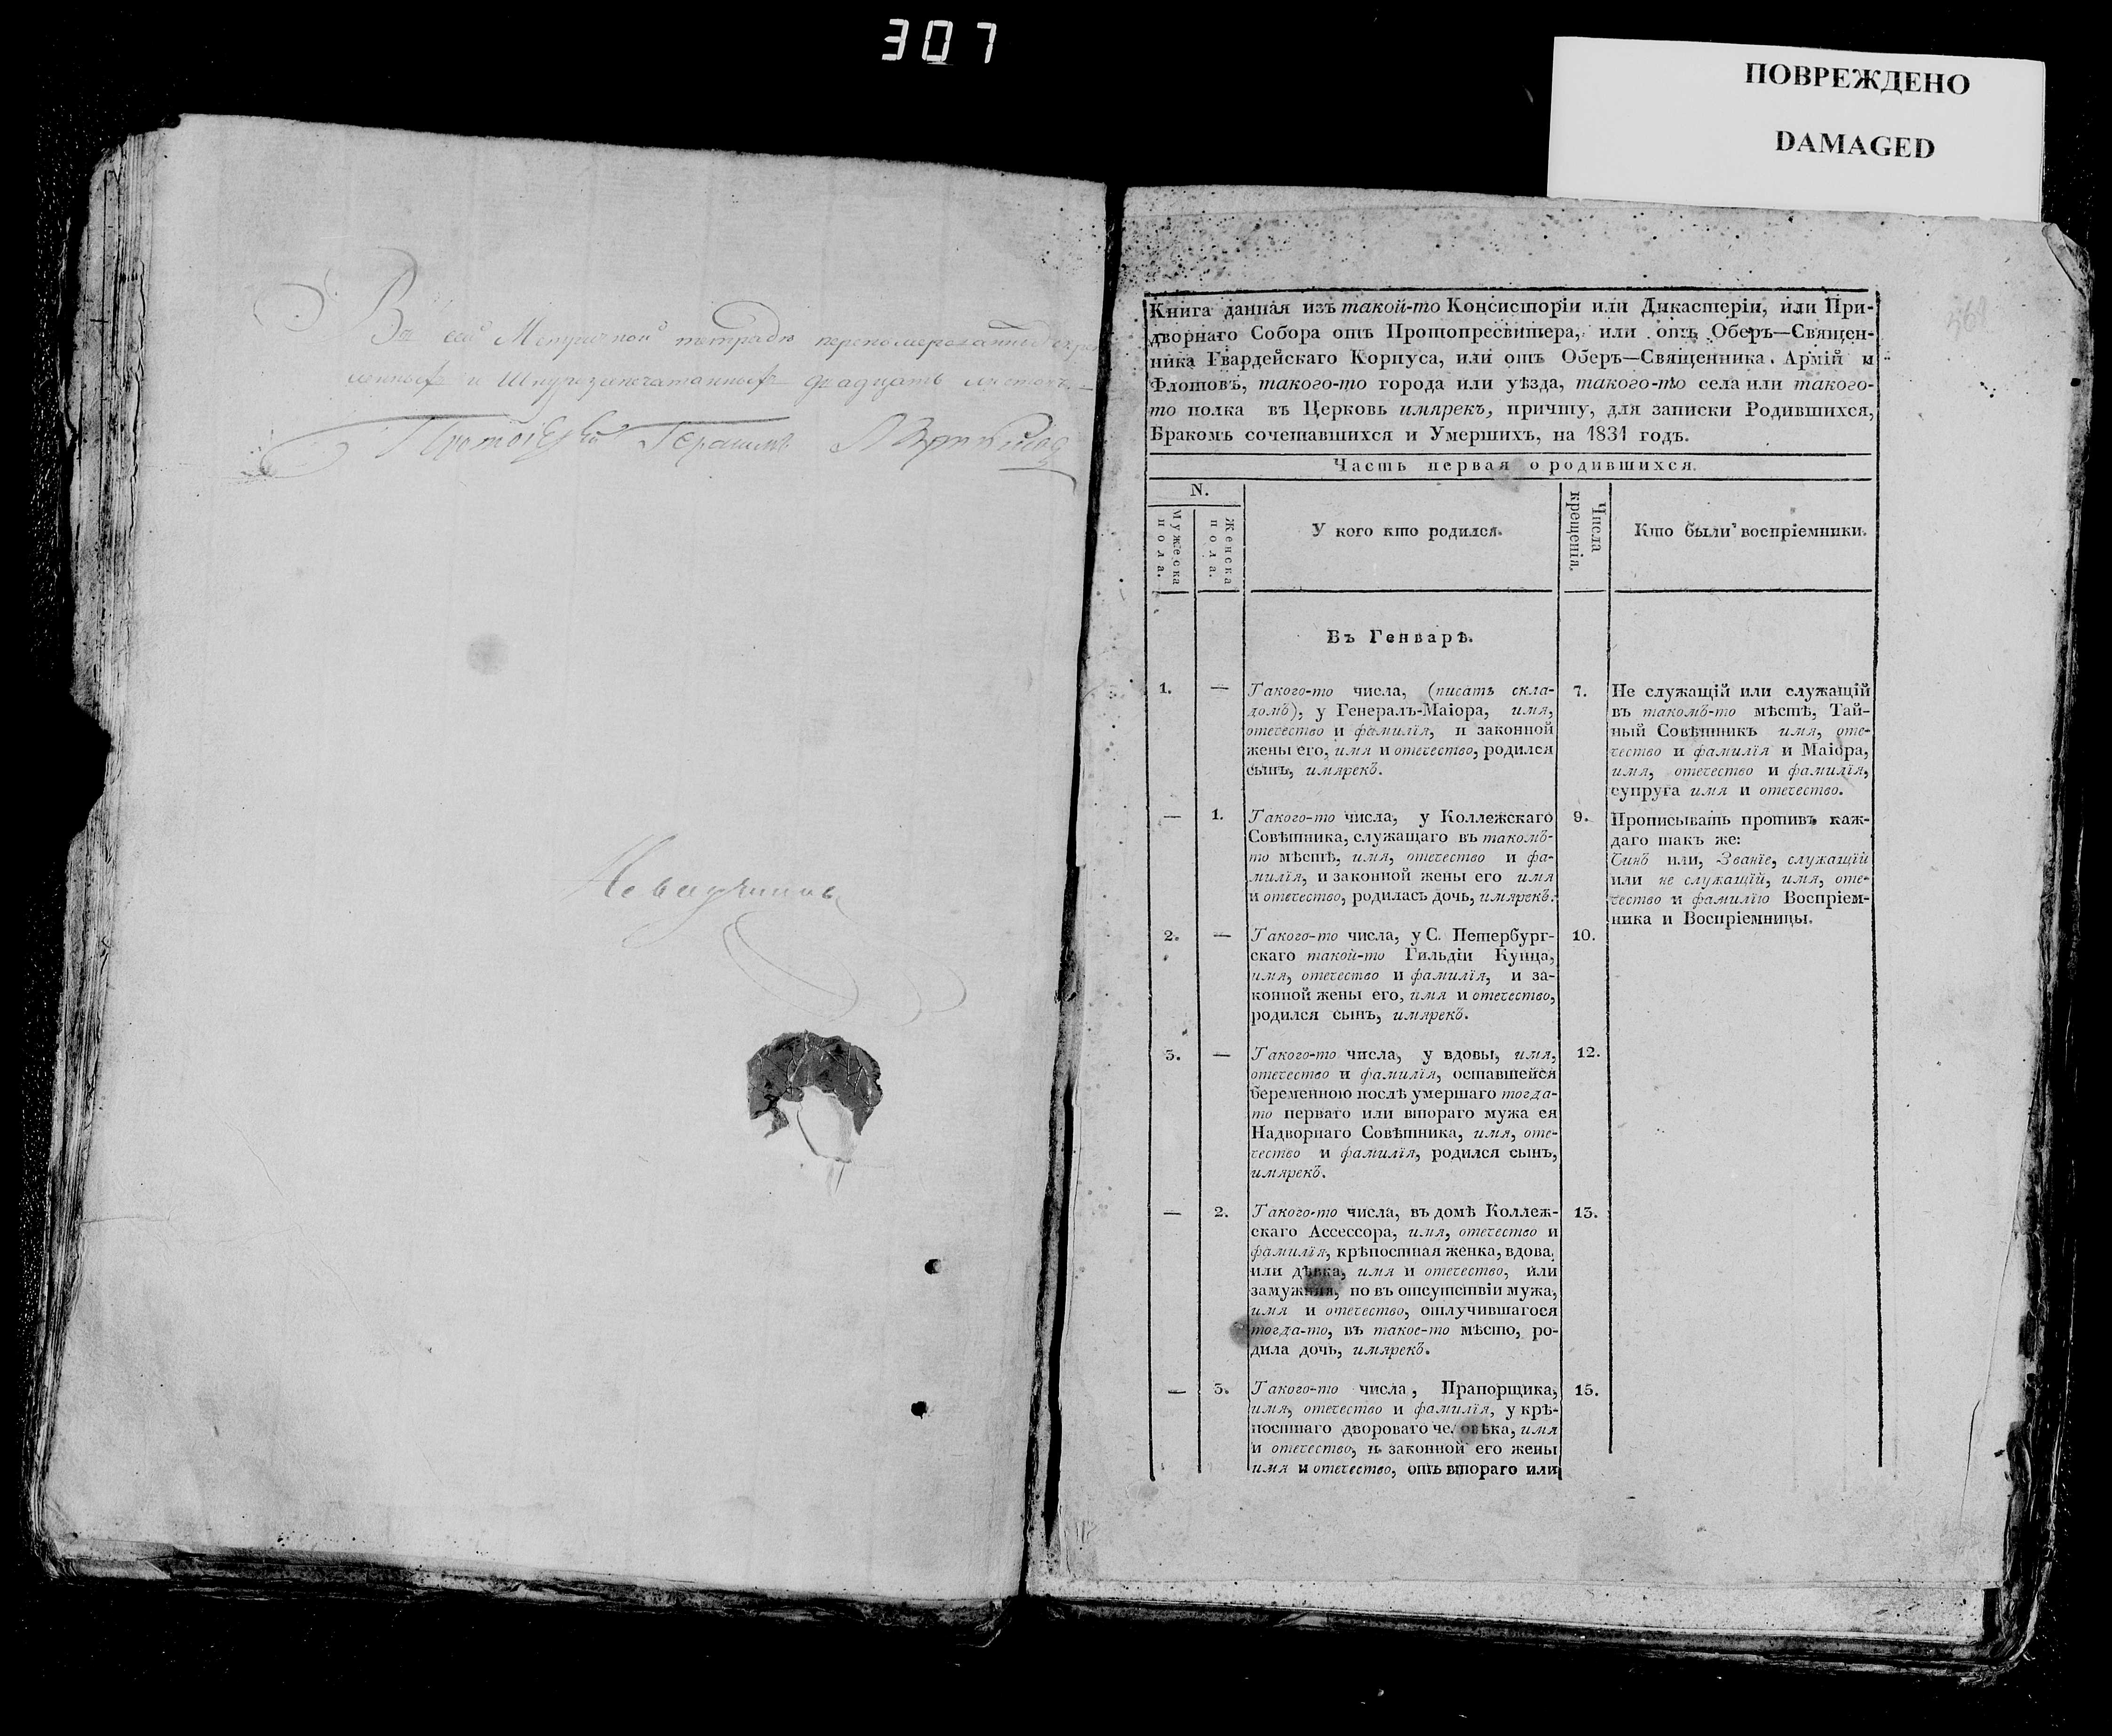 307
ПОВРЕЖДЕНО
DAMAGED
Въ сей Метричной тетради перенумерованныхъ
и Шнурозапечатанныхъ двадцать листовъ
Протоіерей Герасимъ
Книга данная изъ такой-то Консисторіи или Дикастеріи, или При-
дворнаго Собора отъ Протопресвитера, или отъ Оберъ—Священ-
ника Гвардейскаго Корпуса, или отъ Оберъ—Священника Армій и
Флотовъ, такого-то города или уѣзда, такого-то села или такого-
то полка въ Церковь имярекъ, причту, для записки Родившихся,
Бракомъ сочетавшихся и Умершихъ, на 1831 годъ.
Часть первая о родившихся.
N.
Мужеска пола.
Женска пола.
У кого кто родился.
Числа крещенія.
Кто были воспріемники.
Въ Генварѣ.
1. — Такого-то числа, (писать скла-
домъ), у Генералъ-Маіора, имя,
отечество и фамилія, и законной
жены его, имя и отечество, родился
сынъ, имярекъ.
7.
Не служащій или служащій
въ такомъ-то мѣстѣ, Тай-
ный Совѣтникъ имя, оте-
чество и фамилія и Маіора,
имя, отечество и фамилія,
супруга имя и отечество.
— 1. Такого-то числа, у Коллежскаго
Совѣтника, служащаго въ такомъ-
то мѣстѣ, имя, отечество и фа-
милія, и законной жены его имя
и отечество, родилась дочь, имярекъ.
9.
Прописывать противъ каж-
даго такъ же:
Чинъ или, Званіе, служащій
или не служащій, имя, оте-
чество и фамилію Воспріем-
ника и Воспріемницы.
2. — Такого-то числа, у С. Петербург-
скаго такой-то Гильдіи Купца,
имя, отечество и фамилія, и за-
конной жены его, имя и отечество,
родился сынъ, имярекъ.
10.
3. — Такого-то числа, у вдовы, имя,
отечество и фамилія, оставшейся
беременною послѣ умершаго тогда-
то перваго или втораго мужа ея
Надворнаго Совѣтника, имя, оте-
чество и фамилія, родился сынъ,
имярекъ.
12.
— 2. Такого-то числа, въ домѣ Коллеж-
скаго Ассессора, имя, отечество и
фамилія, крѣпостная женка, вдова,
или дѣвка, имя и отечество, или
замужняя, но въ отсутствіи мужа,
имя и отечество, отлучившагося
тогда-то, въ такое-то мѣсто, ро-
дила дочь, имярекъ.
13.
— 3. Такого-то числа, Прапорщика,
имя, отечество и фамилія, у крѣ-
постнаго двороваго человѣка, имя
и отечество, и законной его жены
имя и отечество, отъ втораго или
15.